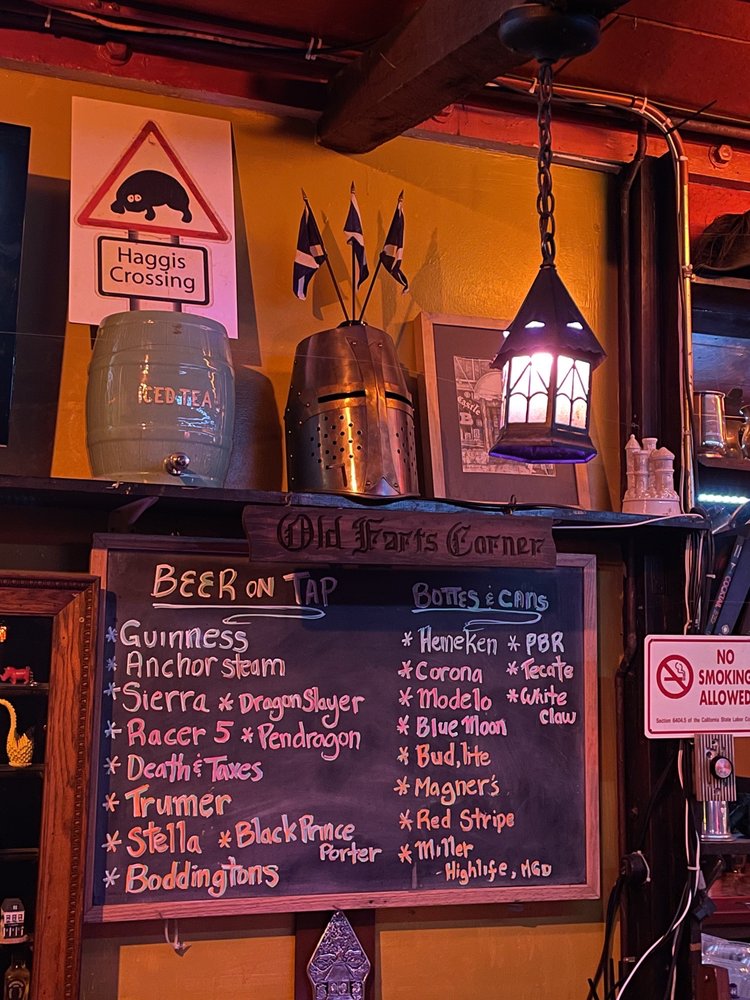 Haggis
Crossing
ICED TEA
Castle
Old Farts Corner
BEER ON TAP
* Guinness
* Anchor steam
* Sierra * Dragon Slayer
* Racer 5 * Pendragon
* Death & Taxes
* Trumer
* Stella * Black Prince
Porter
* Boddingtons
BOTTES & CANS
* Heineken * PBR
* Corona * Tecate
* Modelo * White
claw
* Blue Moon
* Bud, lite
* Magner's
* Red Stripe
* Miller
- Highlife, MGD
COCKTAIL
NO
SMOKING
ALLOWED
Section 6404.5 of the California State Labor